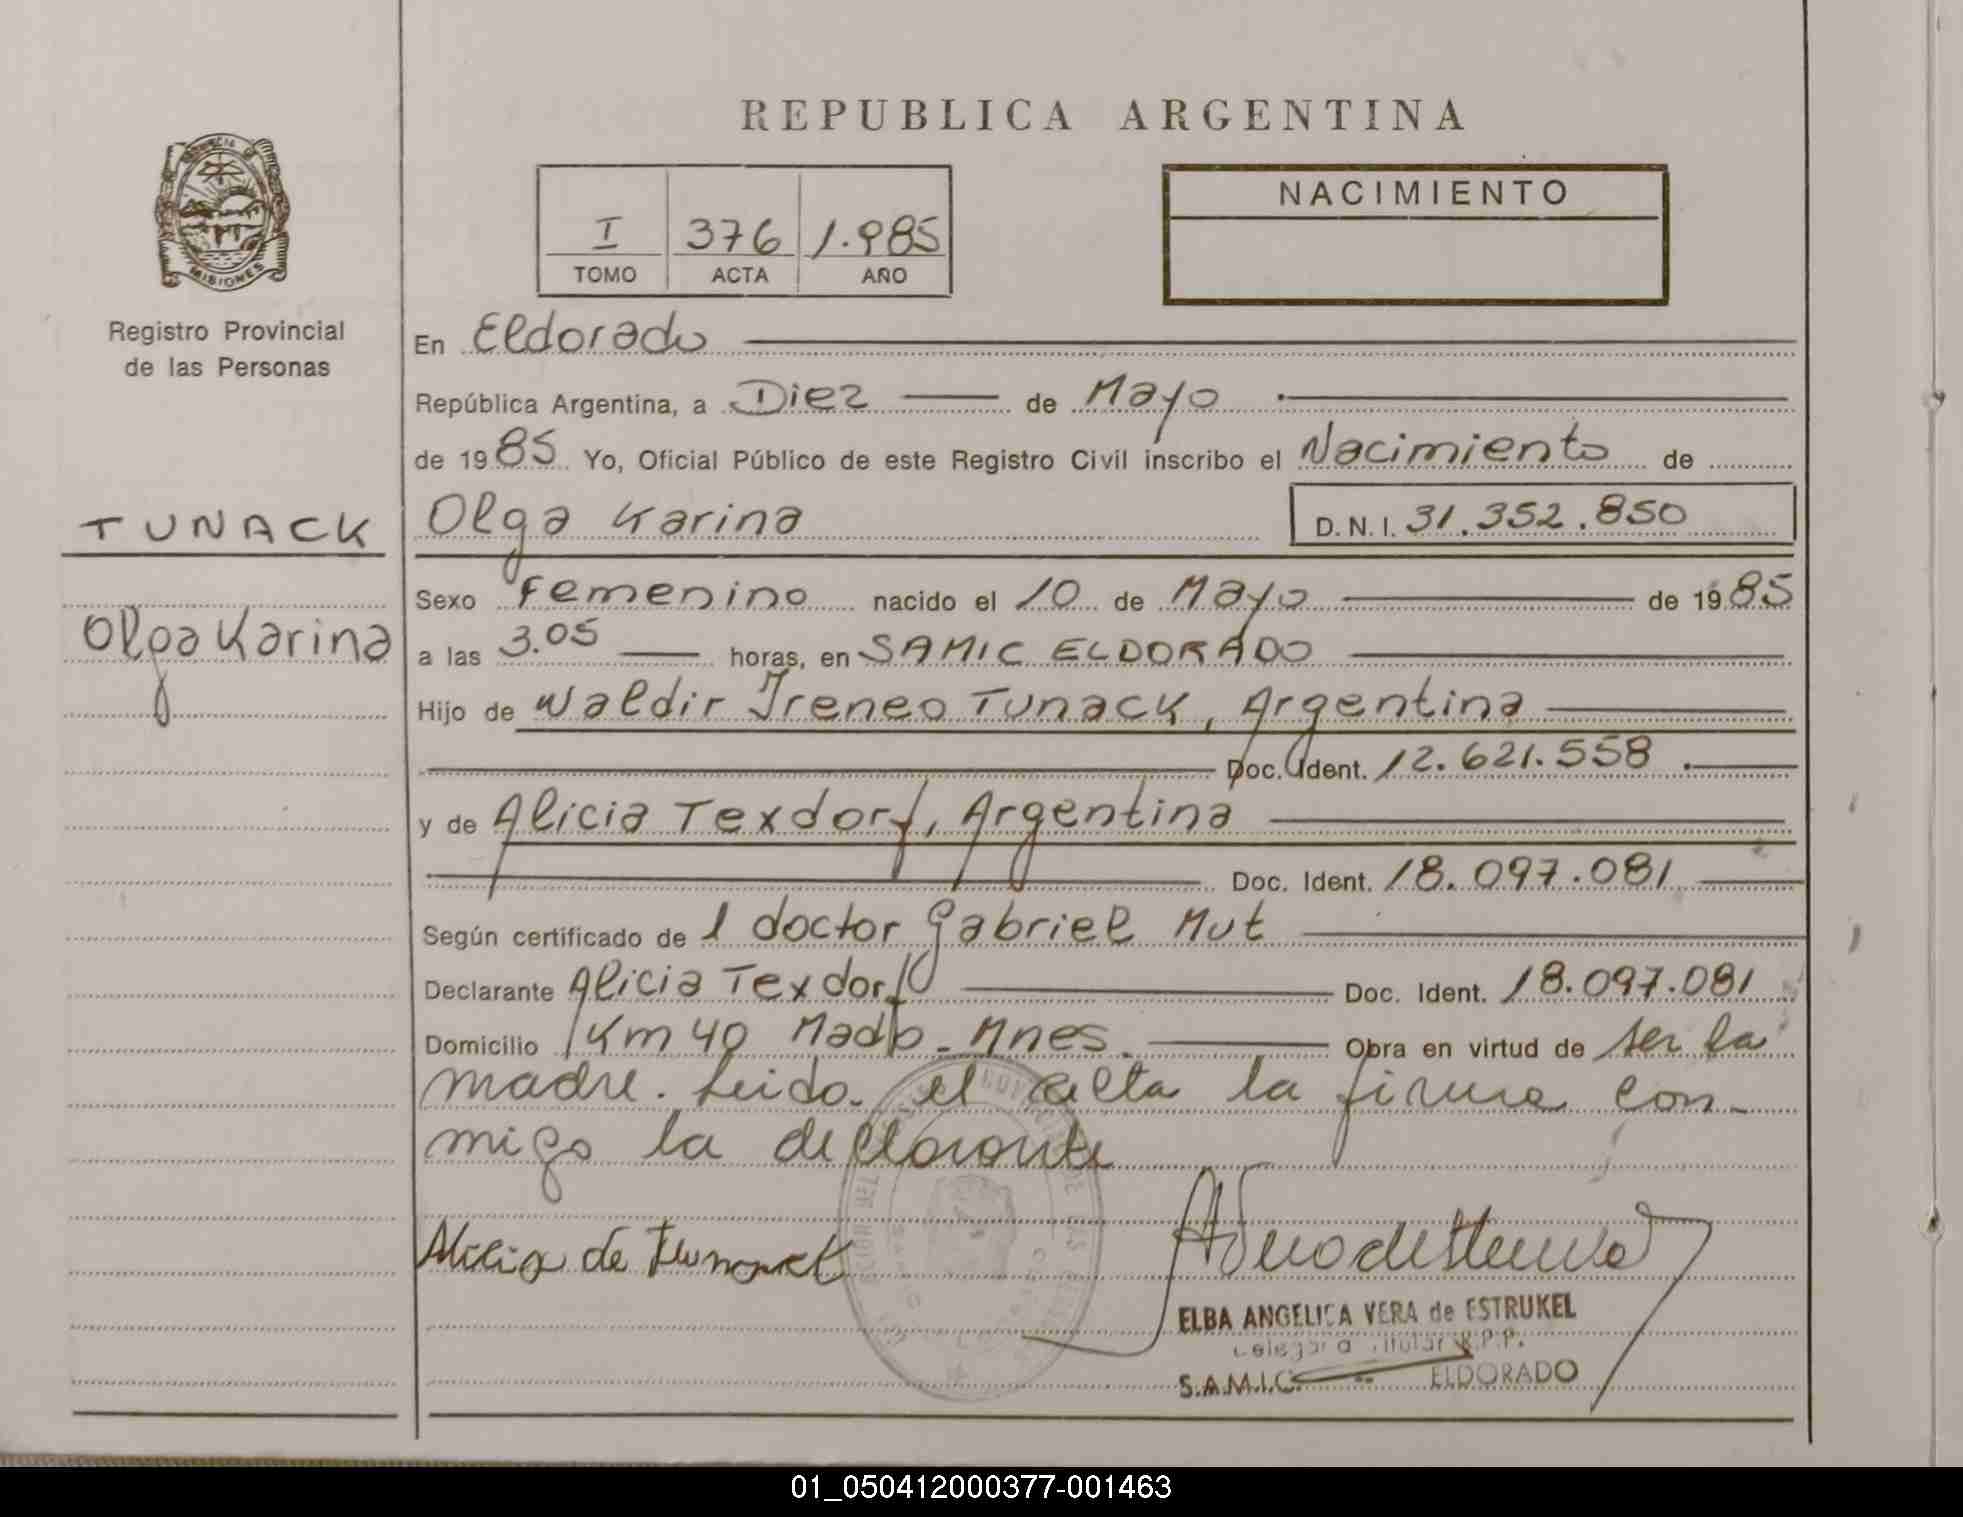 REPUBLICA ARGENTINA
PROVINCIA DE MISIONES
Registro Provincial
de las Personas
TUNACK
Olga Karina
I 376 1.985
TOMO ACTA AÑO
NACIMIENTO
En Eldorado
República Argentina, a Diez de Mayo
de 1985 Yo, Oficial Público de este Registro Civil inscribo el Nacimiento de
Olga Karina D.N.I. 31.352.850
Sexo Femenino nacido el 10 de Mayo de 1985
a las 3.05 horas, en SAMIC ELDORADO
Hijo de Waldir Ireneo Tunack, Argentina
Doc. Ident. 12.621.558.
y de Alicia Texdorf, Argentina
Doc. Ident. 18.097.081
Según certificado de l doctor Gabriel Mut
Declarante Alicia Texdorf Doc. Ident. 18.097.081
Domicilio Km 40 Madp - Mnes. Obra en virtud de ser la
madre. Leida el acta la firma con-
migo la declarante
Alicia de Tunack
ELBA ANGELICA VERA de ESTRUKEL
Delegada Titular R.P.P.
S.A.M.I.C. ELDORADO
01_050412000377-001463